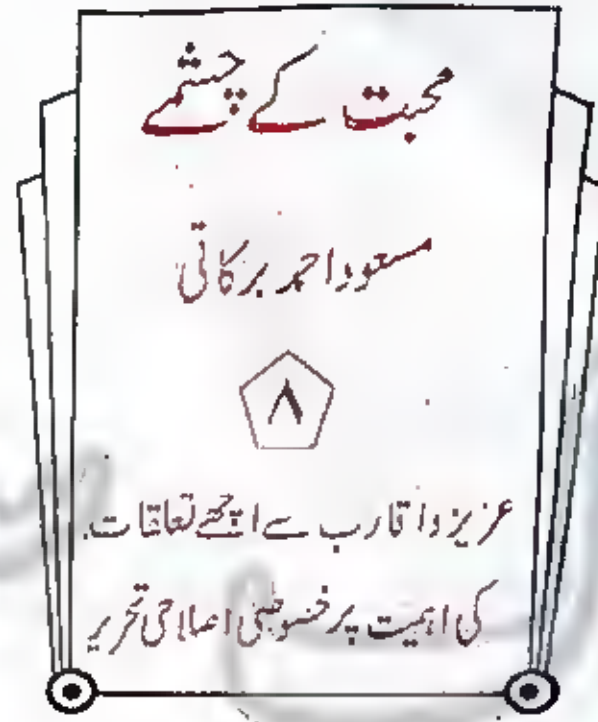 محبت کے چشمے
مسعود احمد برکاتی
۸
عزیز و اقارب سے اچھے تعلقات
کی اہمیت پر خصوصی اصلاحی تحریر